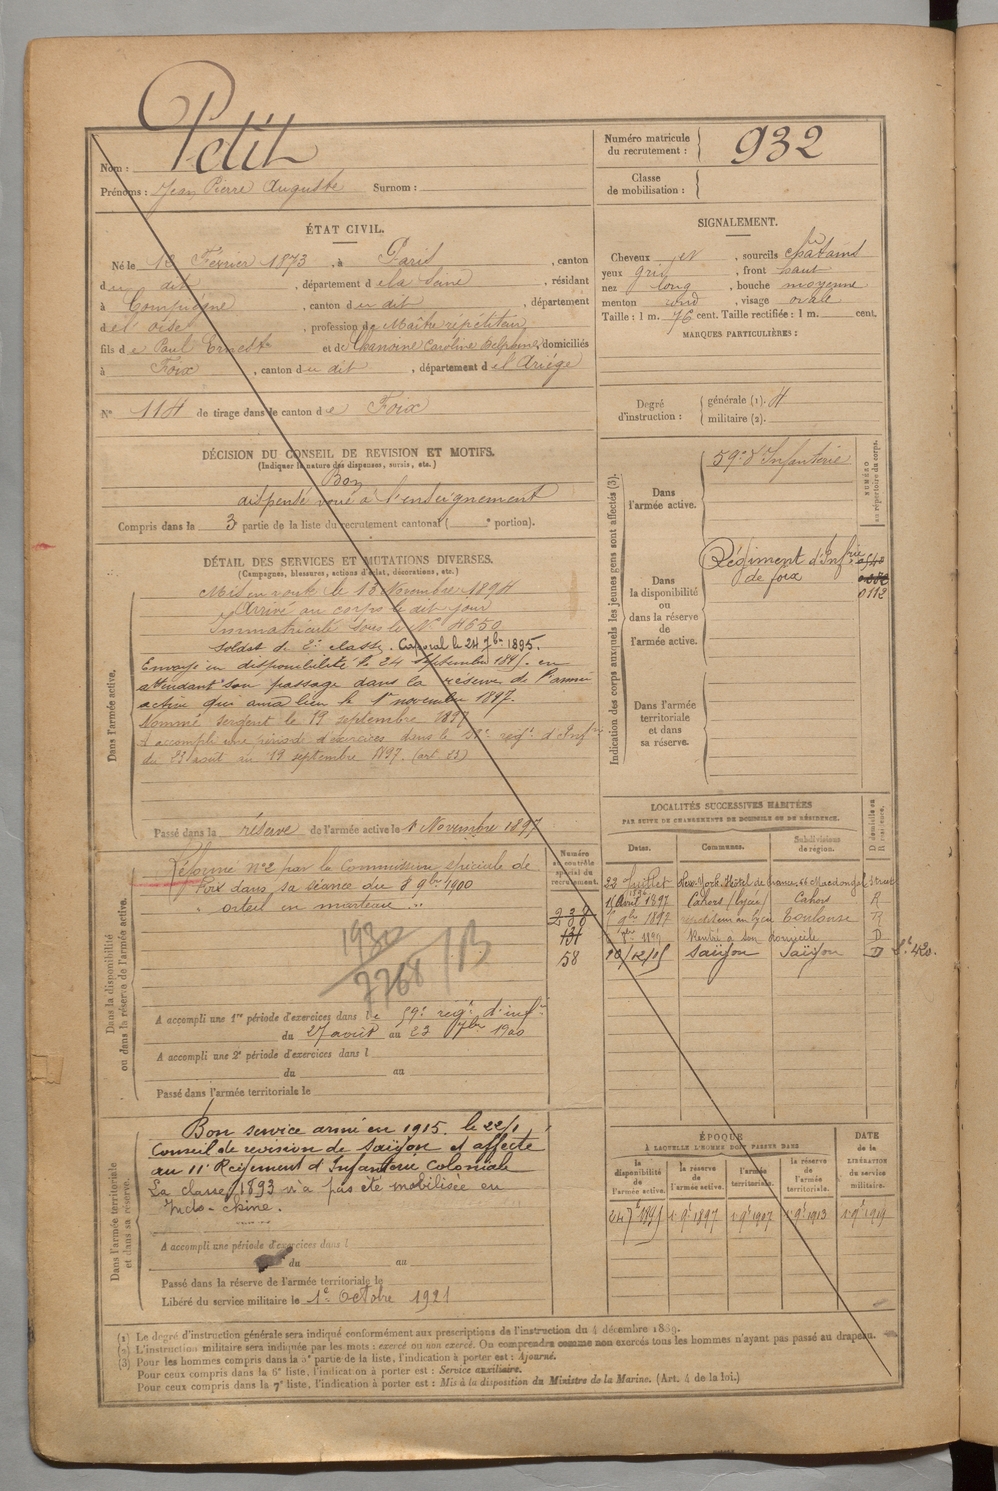 Nom : Petit
Prénoms : Jean Pierre Auguste Surnom :
Numéro matricule du recrutement : 932
Classe de mobilisation :
ÉTAT CIVIL.
Né le Février 1873, à Paris, canton
du dit, département de la Seine, résidant
à Compiègne, canton du dit, département
de l'oise, profession de Maître répétiteur
fils de Paul Ernest et de Chanoine Caroline Delphine, domiciliés
à Foix, canton du dit, département de l'Ariège
N° 114 de tirage dans le canton de Foix
SIGNALEMENT.
Cheveux et, sourcils châtains
yeux gris, front haut
nez long, bouche moyenne
menton rond, visage ovale
Taille : 1 m. 76 cent. Taille rectifiée : 1 m. cent.
MARQUES PARTICULIÈRES :
Degré d'instruction : générale (1). 4
militaire (2).
DÉCISION DU CONSEIL DE REVISION ET MOTIFS.
(Indiquer la nature des dispenses, sursis, etc.)
Bon
dispensé voué à l'enseignement
Compris dans la 3e partie de la liste du recrutement cantonal ( e portion).
Indication des corps auxquels les jeunes gens sont affectés (3).
NUMÉRO au répertoire du corps.
Dans l'armée active. 59e d'Infanterie
Dans la disponibilité ou dans la réserve de l'armée active. Régiment d'Infrie de foix
0112
Dans l'armée territoriale et dans sa réserve.
DÉTAIL DES SERVICES ET MUTATIONS DIVERSES.
(Campagnes, blessures, actions d'éclat, décorations, etc.)
Dans l'armée active.
Mis en route le 13 Novembre 1894
Arrivé au corps le dit jour
Immatriculé sous le N° 4650
Soldat de 2e classe. Caporal le 24 7bre 1895.
Envoyé en disponibilité le 24 septembre 1895. en
attendant son passage dans la réserve de l'armée
active qui aura lieu le 1er novembre 1897.
Nommé sergent le 19 septembre 1897
A accompli une période d'exercices dans le régt d'Infrie
du 23 août au 19 septembre 1897. (art 23)
Passé dans la réserve de l'armée active le 1 Novembre 1897
Dans la disponibilité ou dans la réserve de l'armée active.
Réformé n°2 par la Commission spéciale de
Foix dans sa séance du 8 9bre 1900
" orteil en marteau "
1930
7768 / B
A accompli une 1re période d'exercices dans le 59e régt d'inf
du 27 août au 23 7bre 1900
A accompli une 2e période d'exercices dans l
du au
Passé dans l'armée territoriale le
Numéro au contrôle spécial du recrutement.
238
131
58
LOCALITÉS SUCCESSIVES HABITÉES
PAR SUITE DE CHANGEMENTS DE DOMICILE OU DE RÉSIDENCE.
Dates. Communes. Subdivisions de région. D domicile ou R résidence.
22 Juillet New-York. Hôtel de France. 66 Macdougal Street
1896
1 Avril 1897 Cahors (lycée) Cahors R
9bre 1897 répétiteur au lycée Toulouse R
1899 Rentré à son domicile D
10/12/05 Saïgon Saïgon D
Dans l'armée territoriale et dans sa réserve.
Bon service armé en 1915. le 22/1
Conseil de revision de Saïgon et affecté
au 11e Régiment d'Infanterie Coloniale
La classe 1893 n'a pas été mobilisée en
Indo-chine.
A accompli une période d'exercices dans l
du au
Passé dans la réserve de l'armée territoriale le
Libéré du service militaire le 1e Octobre 1921
ÉPOQUE
À LAQUELLE L'HOMME DOIT PASSER DANS
la disponibilité de l'armée active. la réserve de l'armée active. l'armée territoriale. la réserve de l'armée territoriale.
DATE de la LIBÉRATION du service militaire.
24 7e 1895 1 9e 1897 1 9e 1907 1 9e 1913 1 9e 1919
(1) Le degré d'instruction générale sera indiqué conformément aux prescriptions de l'instruction du 4 décembre 1889.
(2) L'instruction militaire sera indiquée par les mots : exercé ou non exercé. On comprendra comme non exercés tous les hommes n'ayant pas passé au drapeau.
(3) Pour les hommes compris dans la 5e partie de la liste, l'indication à porter est : Ajourné.
Pour ceux compris dans la 6e liste, l'indication à porter est : Service auxiliaire.
Pour ceux compris dans la 7e liste, l'indication à porter est : Mis à la disposition du Ministre de la Marine. (Art. 4 de la loi.)